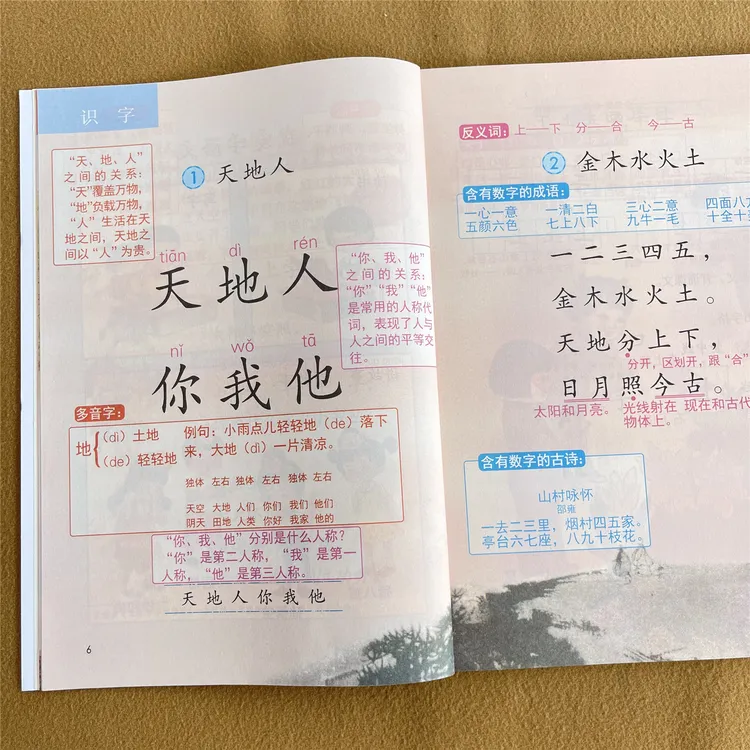 识 字
“天、地、人”
之间的关系:
“天”覆盖万物,
“地”负载万物,
“人”生活在天
地之间,天地之
间以“人”为贵。
1 天地人
tiān dì rén
天地人
“你、我、他”
之间的关系:
“你”“我”“他”
是常用的人称代
词,表现了人与
人之间的平等交
往。
nǐ wǒ tā
你我他
多音字:
地
(dì)土地
(de)轻轻地
例句:小雨点儿轻轻地(de)落下
来,大地(dì)一片清凉。
独体 左右 独体 左右 独体 左右
天空 大地 人们 你们 我们 他们
阴天 田地 人类 你好 我家 他的
“你、我、他”分别是什么人称?
“你”是第二人称,“我”是第一
人称,“他”是第三人称。
天 地 人 你 我 他
6
反义词: 上—下 分—合 今—古
2 金木水火土
含有数字的成语:
一心一意 一清二白 三心二意 四面八
五颜六色 七上八下 九牛一毛 十全十
一二三四五,
金木水火土。
天地分上下,
分开,区划开,跟“合”
日月照今古。
太阳和月亮。 光线射在 现在和古代
物体上。
含有数字的古诗:
山村咏怀
邵雍
一去二三里,烟村四五家。
亭台六七座,八九十枝花。